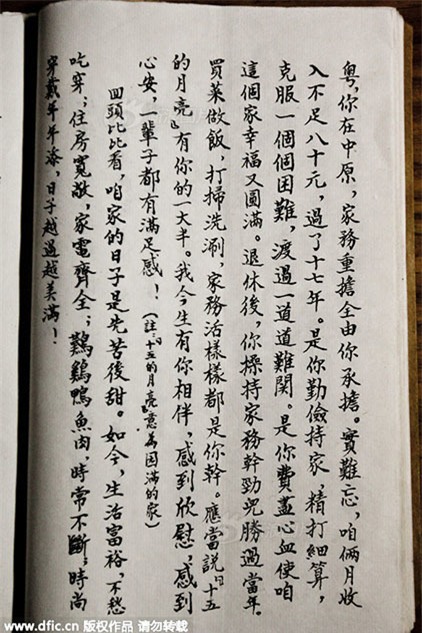 粵,你在中原,家務重擔全由你承擔。實難忘,咱倆月收
入不足八十元,過了十七年。是你勤儉持家,精打細算,
克服一個個困難,渡過一道道難関。是你費盡心血使咱
這個家幸福又圓滿。退休後,你操持家務幹勁兒勝過當年。
買菜做飯,打掃洗涮,家務活樣樣都是你幹。應當說『十五
的月亮』有你的一大半。我今生有你相伴,感到欣慰,感到
心安,一輩子都有滿足感!(註:『十五的月亮』意為圓滿的家)
回頭比比看,咱家的日子是先苦後甜。如今,生活富裕,不愁
吃穿;住房寬敞,家電齊全;鷄鴨魚肉,時常不斷;時尚
穿戴年年添,日子越過越美滿!
www.dfic.cn 版权作品 请勿转载